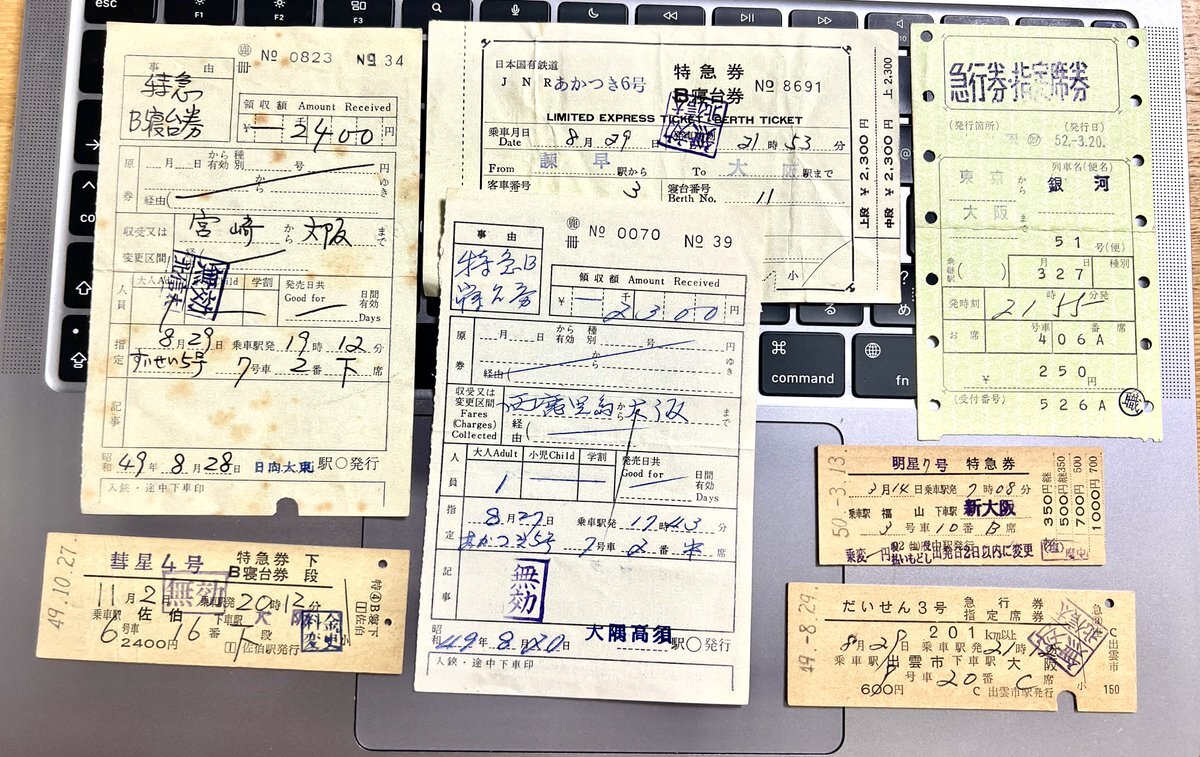 冊 № 0823 № 34
事由
特急
B寝台券
領収額 Amount Received
¥ 一 千 2400 円
原券
月 日 から有効 種別 号 円
から ゆき
経由(
収受又は
変更区間
宮崎 から 大阪 まで
人員
大人Adult 小児Child 学割
発売日共
Good for 日間有効
Days
無効
指定
8月29日 乗車駅発 19時12分
すいせい5号 7号車 2番 下席
記事
昭和 49年 8月28日 日向大束 駅○発行
入鋏・途中下車印
日本国有鉄道
J N R あかつき6号
特急券
B寝台券
№ 8691
LIMITED EXPRESS TICKET BERTH TICKET
乗車月日
Date 8月29日 21時53分
From 諫早 駅から To 大阪 駅まで
客車番号 3 寝台番号
Berth No. 11
上段 ¥2,300円
中段 ¥2,300円
上 2,300
小
冊 № 0070 № 39
事由
特急B
領収額 Amount Received
¥ 一 千 2300 円
原券
月 日 から有効 種別 号 円
から ゆき
経由(
収受又は
変更区間
Fares
(Charges)
Collected
西鹿児島 から 大阪 まで
経由(
人員
大人Adult 小児Child 学割
1
発売日共
Good for 日間有効
Days
指定
8月27日 乗車駅発 17時43分
あかつき5号 7号車 2番 中席
記事
無効
大隅高須
昭和 49年 8月20日 駅○発行
入鋏・途中下車印
急行券・指定席券
(発行箇所) (発行日)
52.-3.20.
列車名(便名)
東京 から 銀河
大阪 まで
51 号(便)
乗継駅( ) 月 日 種別
327
発時刻 21時55分発
お席 号車 番 席
406A
¥ 250円
(受付番号) 526A
職
50.-3.13.
明星7号 特急券
3月14日乗車駅発 7時08分
乗車駅 福山 下車駅 新大阪
3号車10番B席
350円
500円
700円
1000円
49.10.27.
彗星4号 特急券 下
B寝台券 段
無効
11月2日 乗車駅発20時12分
乗車駅 佐伯 下車駅 大阪
6号車 16番 下段
2400円 佐伯駅発行
料金変更
特④B寝下
佐伯
49.-8.29.
だいせん3号 急行券
指定席券
201km以上
8月29日 乗車駅発21時
乗車駅 出雲市 下車駅 大阪
号車 20番 C席
600円 C 出雲市駅発行
小
C出雲市
150
esc
F1
F2
F3
command
fn